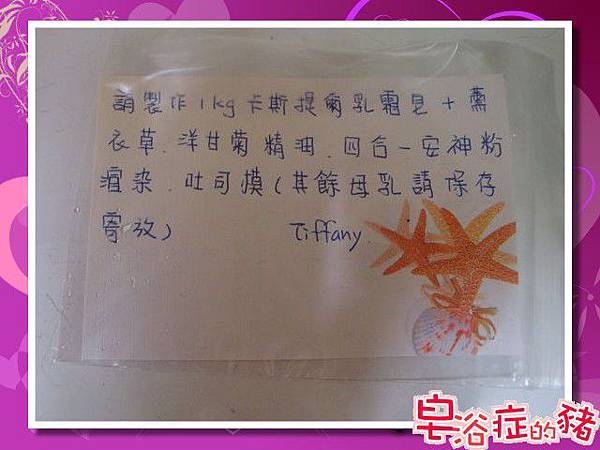 請製作1kg卡斯提葡乳霜皂+薰
衣草.洋甘菊精油.四合一安神粉
渲染.吐司模(其餘母乳請保存
寄放) Tiffany
皂浴症的豬